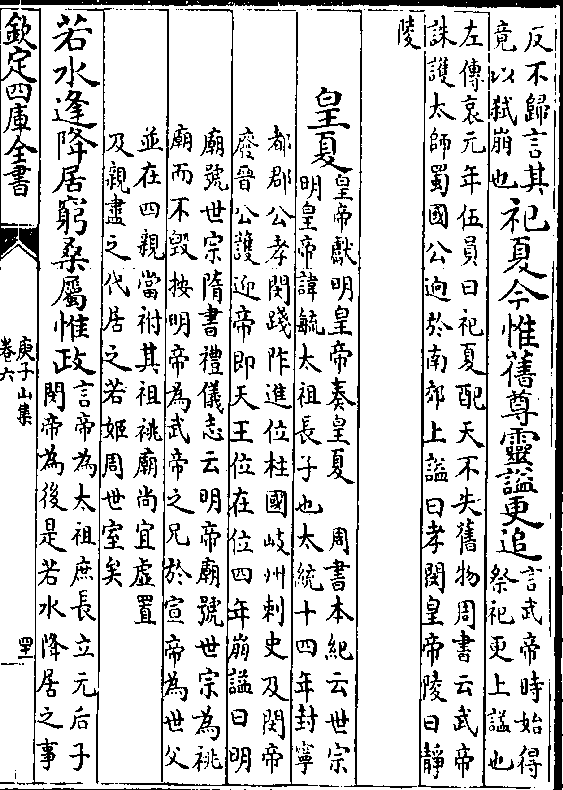 反不歸言其
竟以弑崩也
祀夏今惟舊尊靈謚更追
言武帝時始得
祭祀更上謚也
左傳哀元年伍員曰祀夏配天不失舊物周書云武帝
誅護太師蜀國公迥於南郊上謚曰孝閔皇帝陵曰靜
陵
皇夏
皇帝獻明皇帝奏皇夏　周書本紀云世宗
明皇帝諱毓太祖長子也太統十四年封寧
都郡公孝閔踐阼進位柱國岐州刺史及閔帝
廢晉公護迎帝即天王位在位四年崩謚曰明
廟號世宗隋書禮儀志云明帝廟號世宗為祧
廟而不毀按明帝為武帝之兄於宣帝為世父
並在四親當祔其祖祧廟尚宜虛置
及親盡之代居之若姬周世室矣
若水逢降居窮桑屬惟政
言帝為太祖庶長立元后子
閔帝為後是若水降居之事
欽定四庫全書
庾子山集
卷六
四十